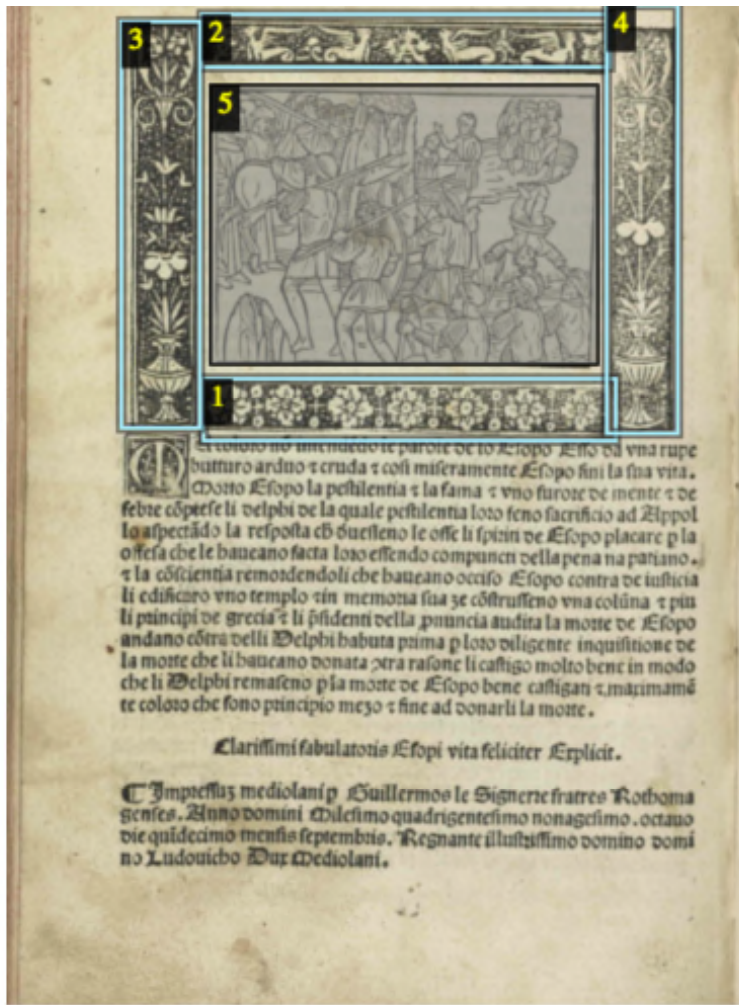 3
2
4
5
1
M A coloro nō intendēdo le parole de lo Esopo Esso da vna rupe
butturo arduo ⁊ cruda ⁊ cosi miseramente Esopo fini la sua vita.
Morto Esopo la pestilentia ⁊ la fama ⁊ vno furore de mente ⁊ de
febre cōprese li delphi de la quale pestilentia loro feno sacrificio ad Appol
lo aspectādo la resposta ch̄ douesseno le osse li spiriti de Esopo placare p la
offesa che le haueano facta loro essendo compuncti della pena na patiano.
⁊ la cōscientia remordendoli che haueano occiso Esopo contra de iusticia
li edificaro vno templo ⁊ in memoria sua ze cōstrusseno vna colūna ⁊ piu
li principi de grecia ⁊ li p̄sidenti della ꝓuuncia audita la morte de Esopo
andano cōtra delli Delphi habuta prima p loro diligente inquisitione de
la morte che li haueano donata ꝯtra rasone li castigo molto bene in modo
che li Delphi remaseno p la morte de Esopo bene castigati ⁊ maximamē
te coloro che fono principio mezo ⁊ fine ad donarli la morte.
Clarissimi fabulatoris Esopi vita feliciter Explicit.
¶ Impressuz mediolani p Guillermos le Signerre fratres Rothoma
genses. Anno domini Milesimo quadrigentesimo nonagesimo. octauo
die quīdecimo mensis septembris. Regnante illustrissimo domino domi
no Ludouicho Dux Mediolani.